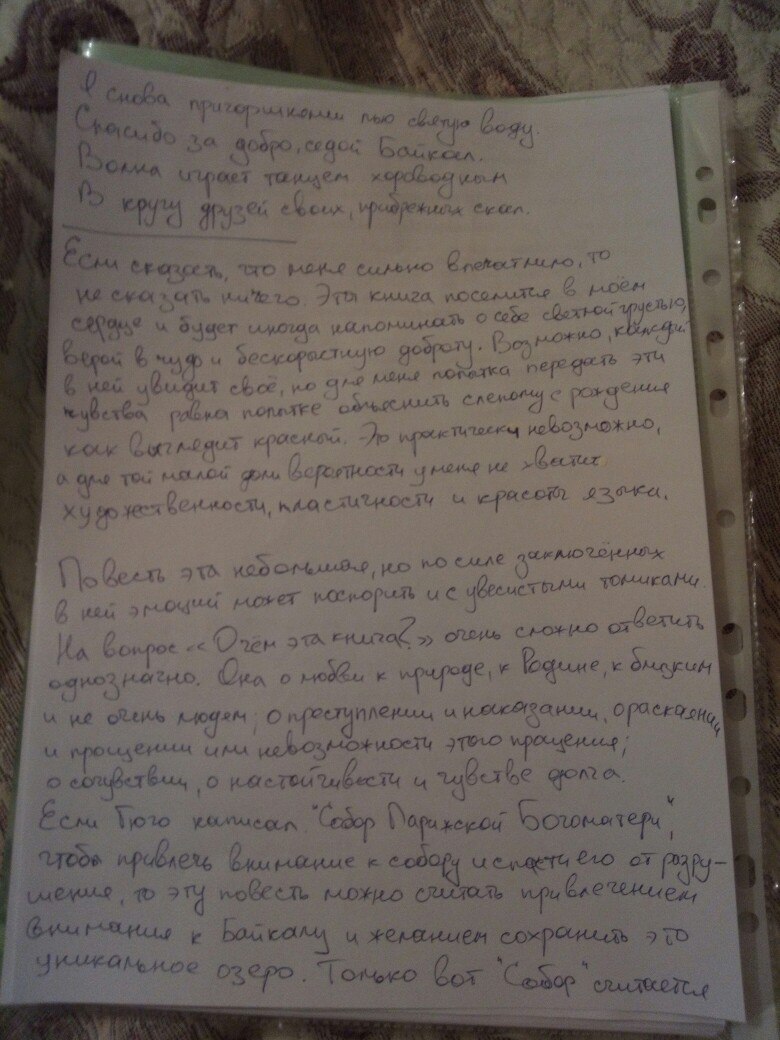 Я снова пригоршнями пью святую воду.
Спасибо за добро, седой Байкал.
Волна играет танцем хороводным
В кругу друзей своих, прибрежных скал.
Если сказать, что меня сильно впечатлило, то
не сказать ничего. Эта книга поселится в моём
сердце и будет иногда напоминать о себе светлой грустью,
верой в чудо и бескорыстную доброту. Возможно, каждый
в ней увидит своё, но для меня попытка передать эти
чувства равна попытке объяснить слепому с рождения
как выглядит красный. Это практически невозможно,
а для той малой доли вероятности у меня не хватит
художественности, пластичности и красоты языка.
Повесть эта небольшая, но по силе заключённых
в ней эмоций может поспорить и с увесистыми томиками.
На вопрос «О чём эта книга?» очень сложно ответить
однозначно. Она о любви к природе, к Родине, к близким
и не очень людям; о преступлении и наказании, о раскаянии
и прощении или невозможности этого пращения;
о сочувствии, о настойчивости и чувстве долга.
Если Гюго написал "Собор Парижской Богоматери",
чтобы привлечь внимание к собору и спасти его от разру-
шения, то эту повесть можно считать привлечением
внимания к Байкалу и желанием сохранить это
уникальное озеро. Только вот "Собор" считается